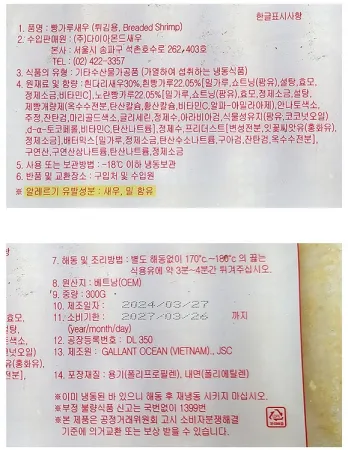 한글표시사항
1. 품명 : 빵가루새우 (튀김용, Breaded Shrimp)
2. 수입판매원 : (주)다이아몬드새우
본사 : 서울시 송파구 석촌호수로 262, 403호
TEL : 02) 422-3357
3. 식품의 유형 : 기타수산물가공품 (가열하여 섭취하는 냉동식품)
4. 원재료 및 함량 : 흰다리새우30%,흰빵가루22.05%[밀가루,쇼트닝(팜유),설탕,효모,
정제소금,비타민C],노란빵가루22.05%[밀가루,쇼트닝(팜유),효모,정제소금,설탕,
제빵개량제(옥수수전분,탄산칼슘,황산칼슘,비타민C,알파-아밀라아제),안나토색소,
주정,잔탄검,마리골드색소,글리세린,정제수,아라비아검,식물성유지(팜유,코코넛오일)
,d-α-토코페롤,비타민C,탄산나트륨],정제수,프리더스트[변성전분,잇꽃씨앗유(홍화유),
정제소금],배터믹스[밀가루,정제소금,탄산수소나트륨,구아검,잔탄검,옥수수전분],
구연산,구연산삼나트륨,탄산나트륨,정제소금
5. 사용 또는 보관방법 : -18℃이하 냉동보관
6. 반품 및 교환장소 : 구입처 및 수입원
※ 알레르기 유발성분 : 새우, 밀 함유
7. 해동 및 조리방법 : 별도 해동없이 170℃~180℃의 끓는
식용유에 약 3분~4분간 튀겨주십시오.
8. 원산지 : 베트남(OEM)
9. 중량 : 300G
10. 제조일자 : 2024/03/27
11. 소비기한 : 2027/03/26 까지
(year/month/day)
12. 공장등록번호 : DL 350
13. 제조원 : GALLANT OCEAN (VIETNAM)., JSC
14. 포장재질 : 용기(폴리프로필렌), 내면(폴리에틸렌)
※이미 냉동된 바 있으니 해동 후 재냉동 시키지 마십시오.
※부정 불량식품 신고는 국번없이 1399번
※본 제품은 공정거래위원회 고시 소비자분쟁해결
기준에 의거교환 또는 보상 받을 수 있습니다.